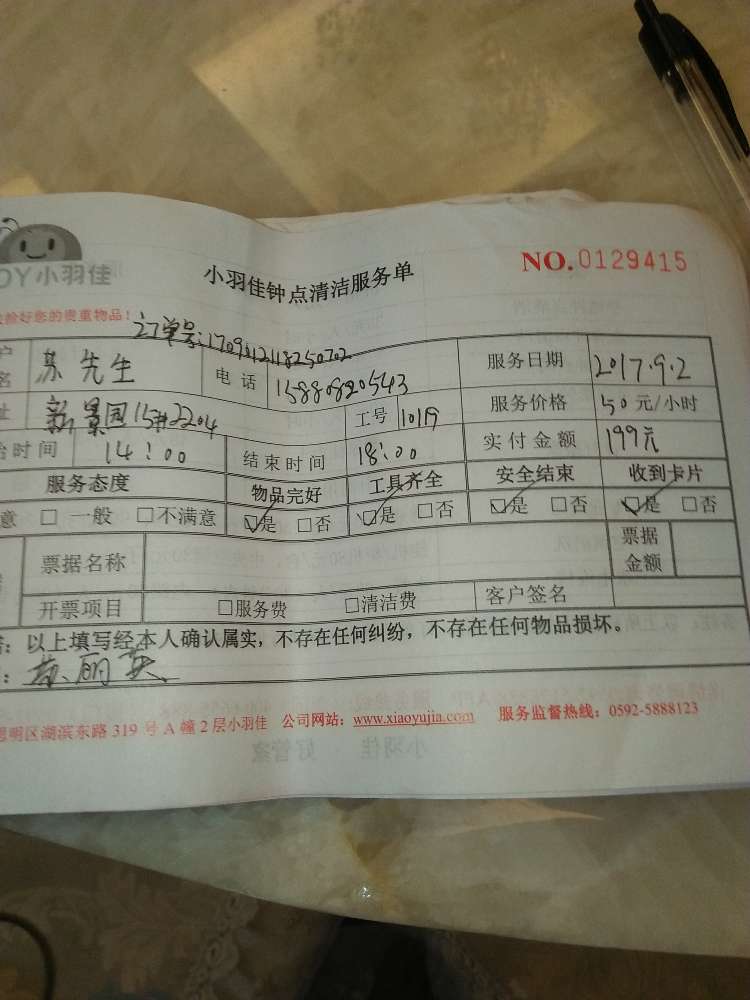 OY小羽佳
小羽佳钟点清洁服务单
NO.0129415
捡好您的贵重物品！
订单号:170901218250702
户名 苏先生 电话 15880820543 服务日期 2017.9.2
址 新景园15#2204 工号 1019 服务价格 50元/小时
始时间 14:00 结束时间 18:00 实付金额 199元
服务态度 物品完好 工具齐全 安全结束 收到卡片
意 □一般 □不满意 ☑是 □否 ☑是 □否 ☑是 □否 ☑是 □否
票据名称 票据金额
开票项目 □服务费 □清洁费 客户签名
：以上填写经本人确认属实，不存在任何纠纷，不存在任何物品损坏。
：丽英
思明区湖滨东路319号A幢2层小羽佳 公司网站：www.xiaoyujia.com 服务监督热线：0592-5888123